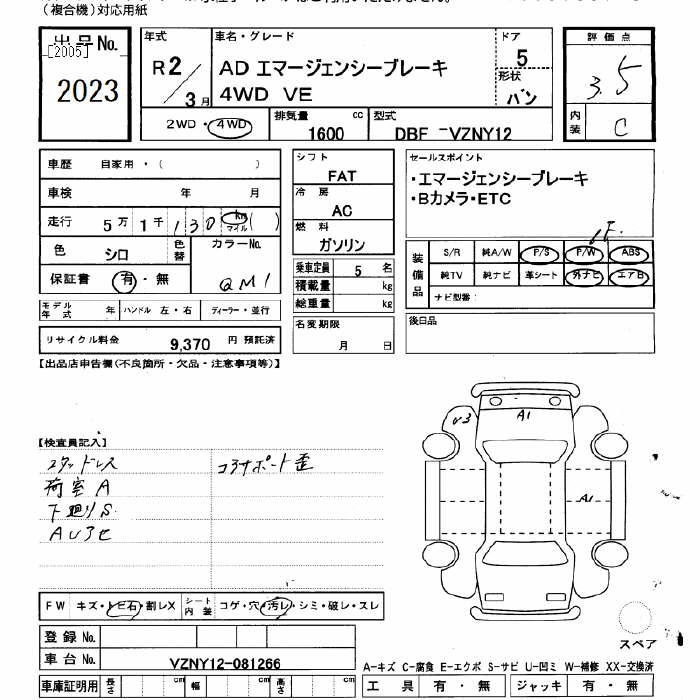 (複合機)対応用紙
出品No.
[2005]
2023
年式
R2/3月
車名・グレード
AD エマージェンシーブレーキ
4WD VE
ドア
5
形状
バン
評価点
3.5
内装
C
2WD・4WD
排気量
1600 cc
型式
DBF-VZNY12
車歴 自家用・( )
車検 年 月
走行 5万 1千 130 km マイル ( )
色 シロ 色替
カラーNo.
QM1
保証書 有・無
モデル年式 年 ハンドル 左・右 ディーラー・並行
リサイクル料金 9,370 円 預託済
シフト
FAT
冷房
AC
燃料
ガソリン
乗車定員 5 名
積載量 kg
総重量 kg
名変期限
月 日
セールスポイント
・エマージェンシーブレーキ
・Bカメラ・ETC
装備品
S/R 純A/W P/S P/W ABS
純TV 純ナビ 革シート 外ナビ エアB
ナビ型番:
後日品
【出品店申告欄(不良箇所・欠品・注意事項等)】
【検査員記入】
スタッドレス
コアサポート歪
荷室A
下廻りS
AU3セ
U3
A1
A1
スペア
FW キズ・トビ石・割レX
シート内装 コゲ・穴・汚レ・シミ・破レ・スレ
登録No.
車台No. VZNY12-081266
車庫証明用 長さ cm 幅 cm 高さ cm
A-キズ C-腐食 E-エクボ S-サビ U-凹ミ W-補修 XX-交換済
工具 有・無 ジャッキ 有・無